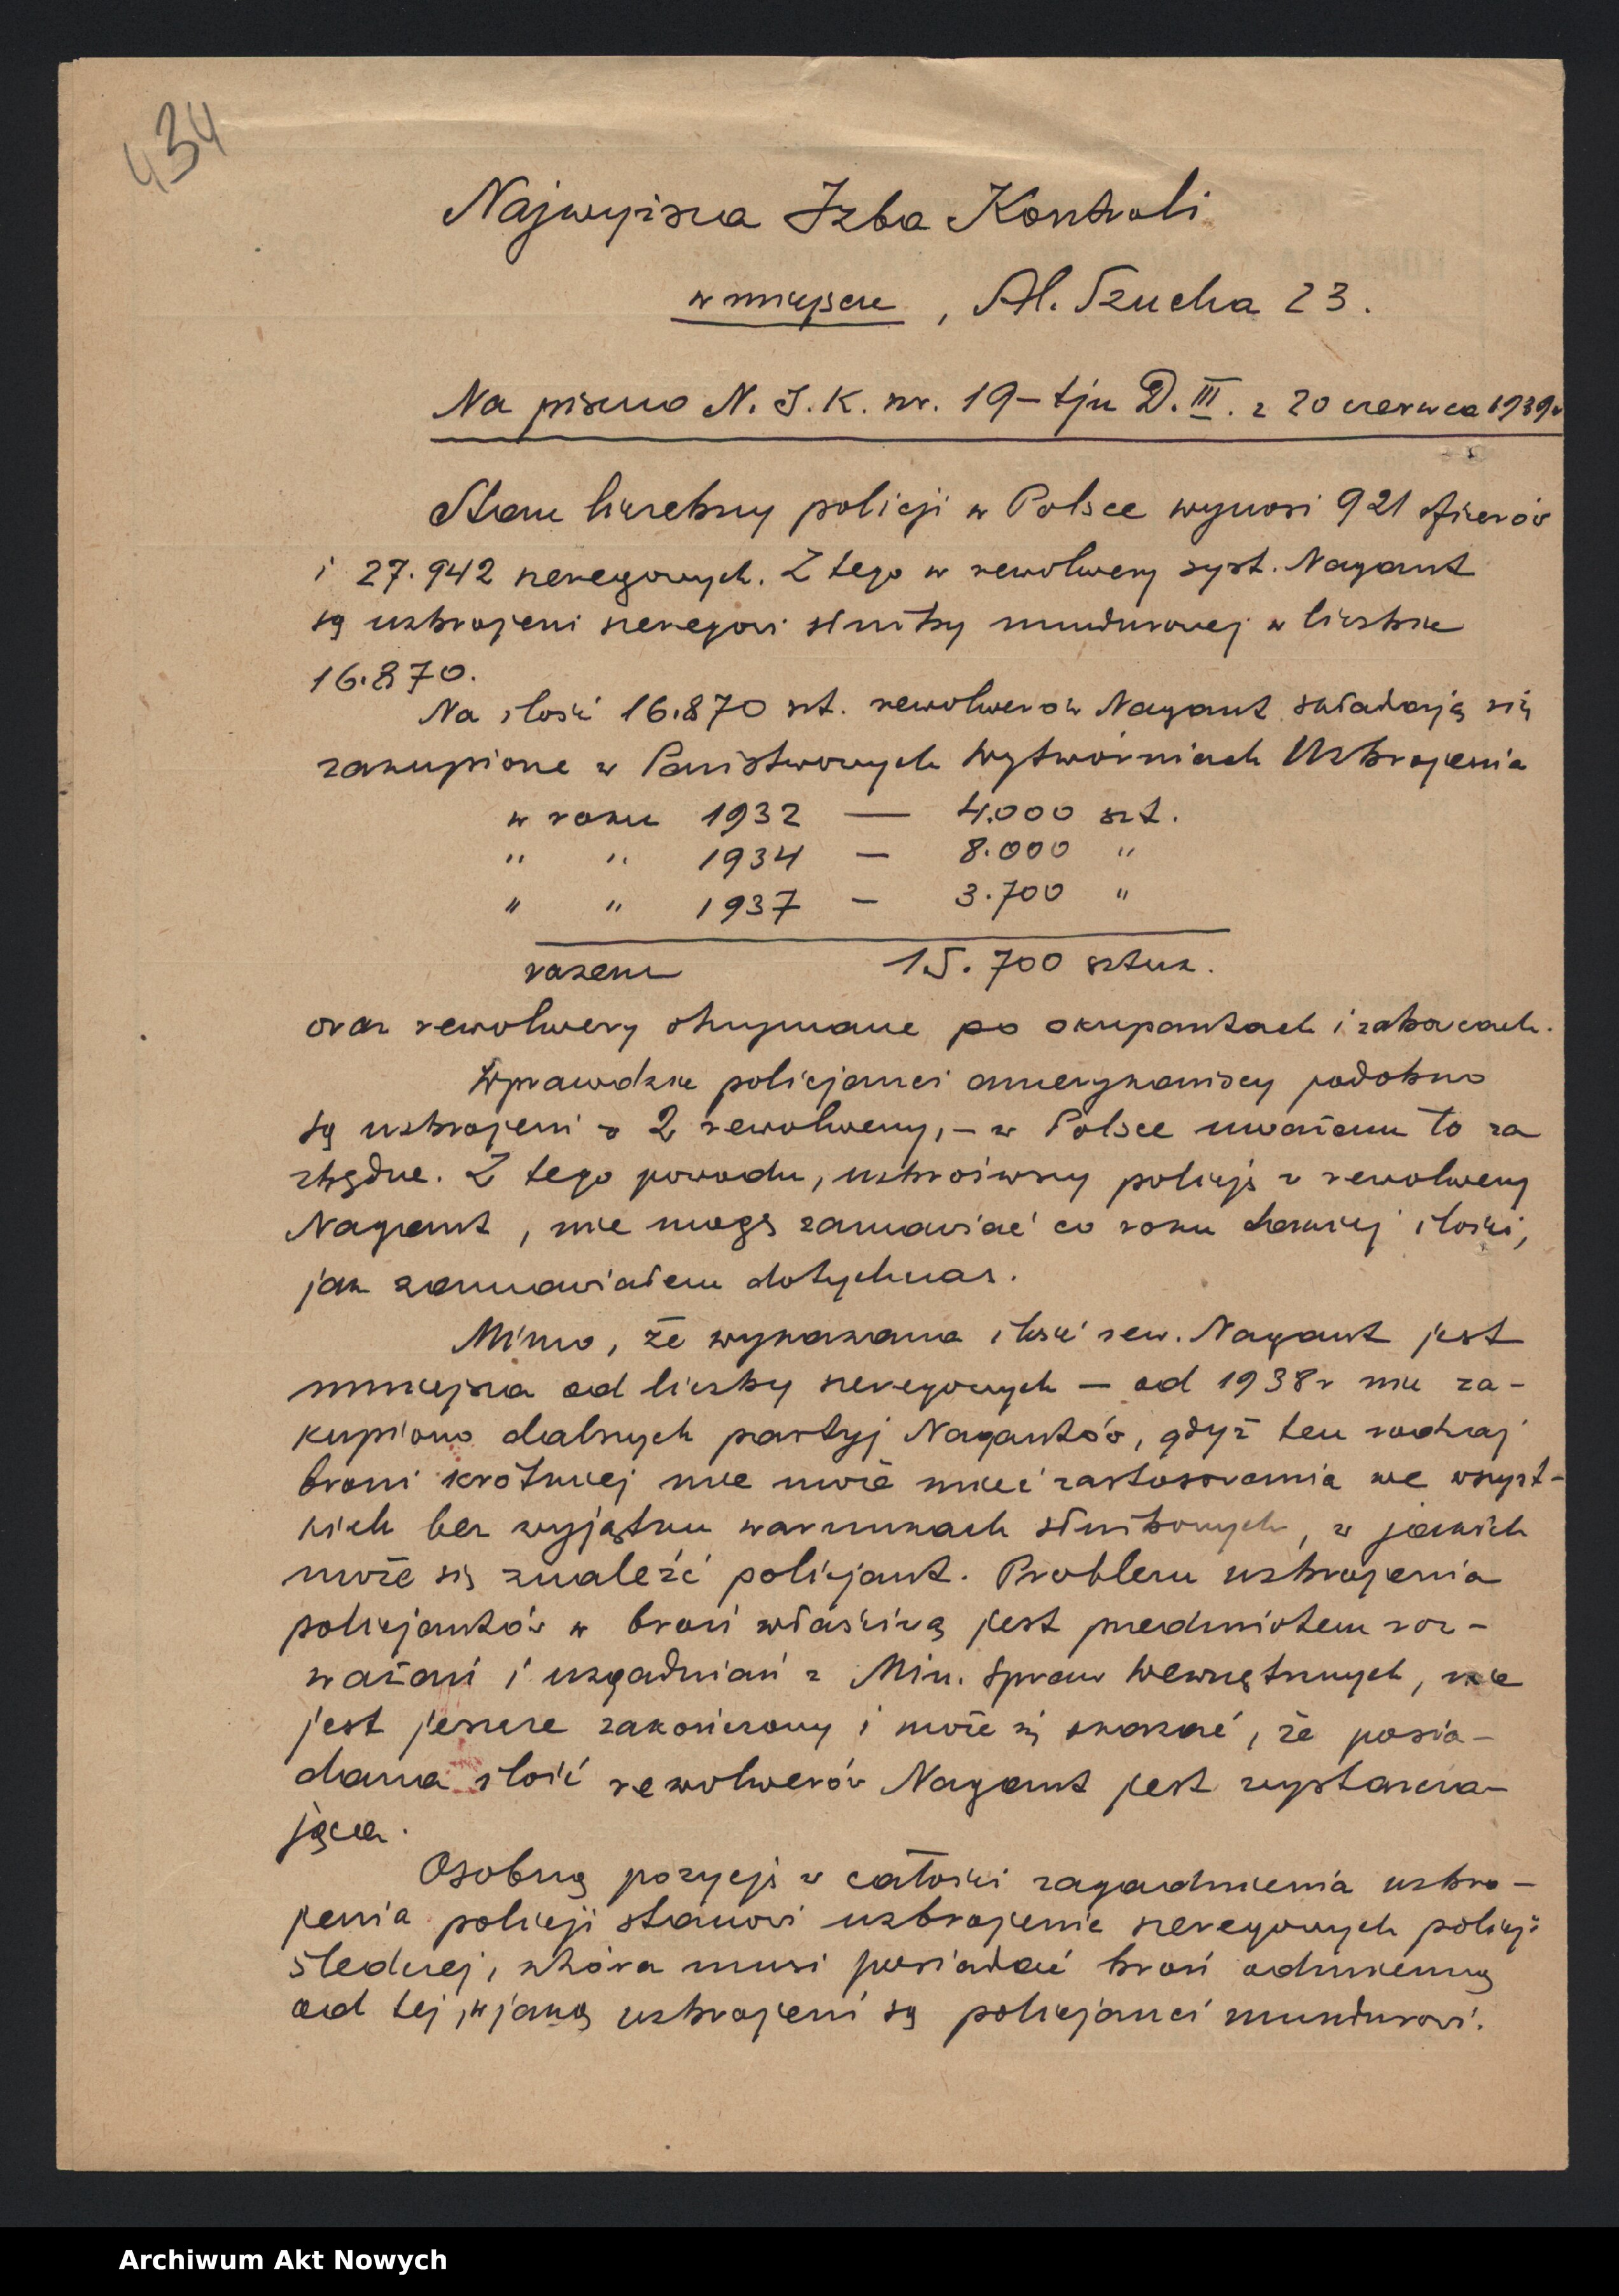 434
Najwyższa Izba Kontroli
w miejscu, Al. Szucha 23.
Na pismo N.I.K. nr. 19-tjn D.III. z 20 czerwca 1939r
Stan liczebny policji w Polsce wynosi 921 oficerów
i 27.942 szeregowych. Z tego w rewolwery syst. Nagant
są uzbrojeni szeregowi służby mundurowej w liczbie
16.870.
Na ilość 16.870 szt. rewolwerów Nagant składają się
zakupione w Państwowych Wytwórniach Uzbrojenia
w roku 1932 — 4.000 szt.
" " 1934 — 8.000 "
" " 1937 — 3.700 "
razem 15.700 sztuk.
oraz rewolwery otrzymane po okupantach i zaborcach.
Wprawdzie policjanci amerykańscy podobno
są uzbrojeni w 2 rewolwery, – w Polsce uważam to za
zbędne. Z tego powodu, uzbroiwszy policję w rewolwery
Nagant, nie mogę zamawiać co roku takiej ilości,
jak zamawiałem dotychczas.
Mimo, że wykazana ilość rew. Nagant jest
mniejsza od liczby szeregowych – od 1938r nie za-
kupiono dalszych partyj Nagantów, gdyż ten rodzaj
broni krótkiej nie może mieć zastosowania we wszyst-
kich bez wyjątku warunkach służbowych, w jakich
może się znaleźć policjant. Problem uzbrojenia
policjantów w broń właściwą jest przedmiotem roz-
ważań i uzgadniań z Min. Spraw Wewnętrznych, nie
jest jeszcze zakończony i może się okazać, że posia-
dana ilość rewolwerów Nagant jest wystarcza-
jąca.
Osobną pozycję w całości zagadnienia uzbro-
jenia policji stanowi uzbrojenie szeregowych policji
śledczej, która musi posiadać broń odmienną
od tej, w jaką uzbrojeni są policjanci mundurowi.
Archiwum Akt Nowych